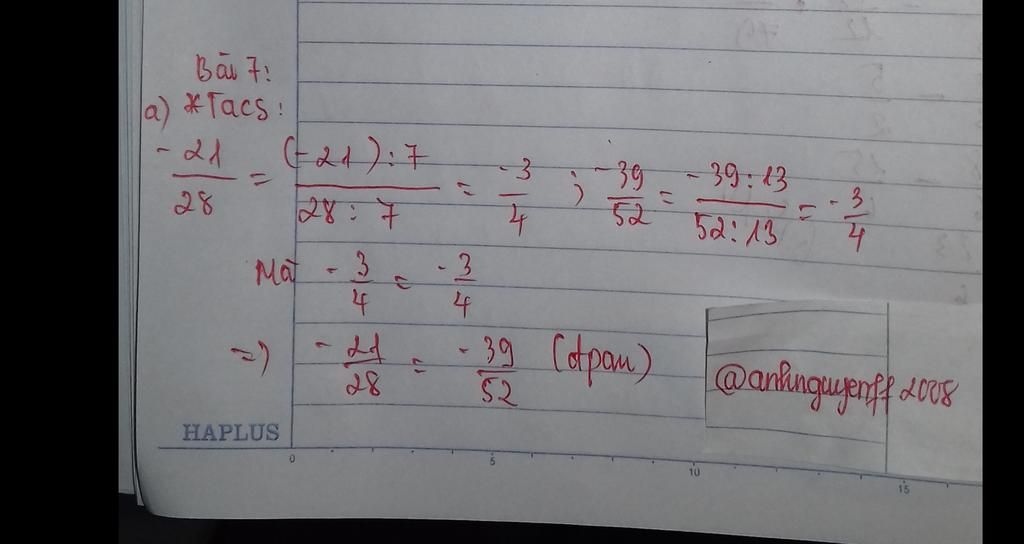 Bài 7:
a) *Tacs:
-21/28 = (-21):7/28:7 = -3/4 ; -39/52 = -39:13/52:13 = -3/4
Mà -3/4 = -3/4
=> -21/28 = -39/52 (đpcm)
@anhnguyenff2008
HAPLUS
0 5 10 15